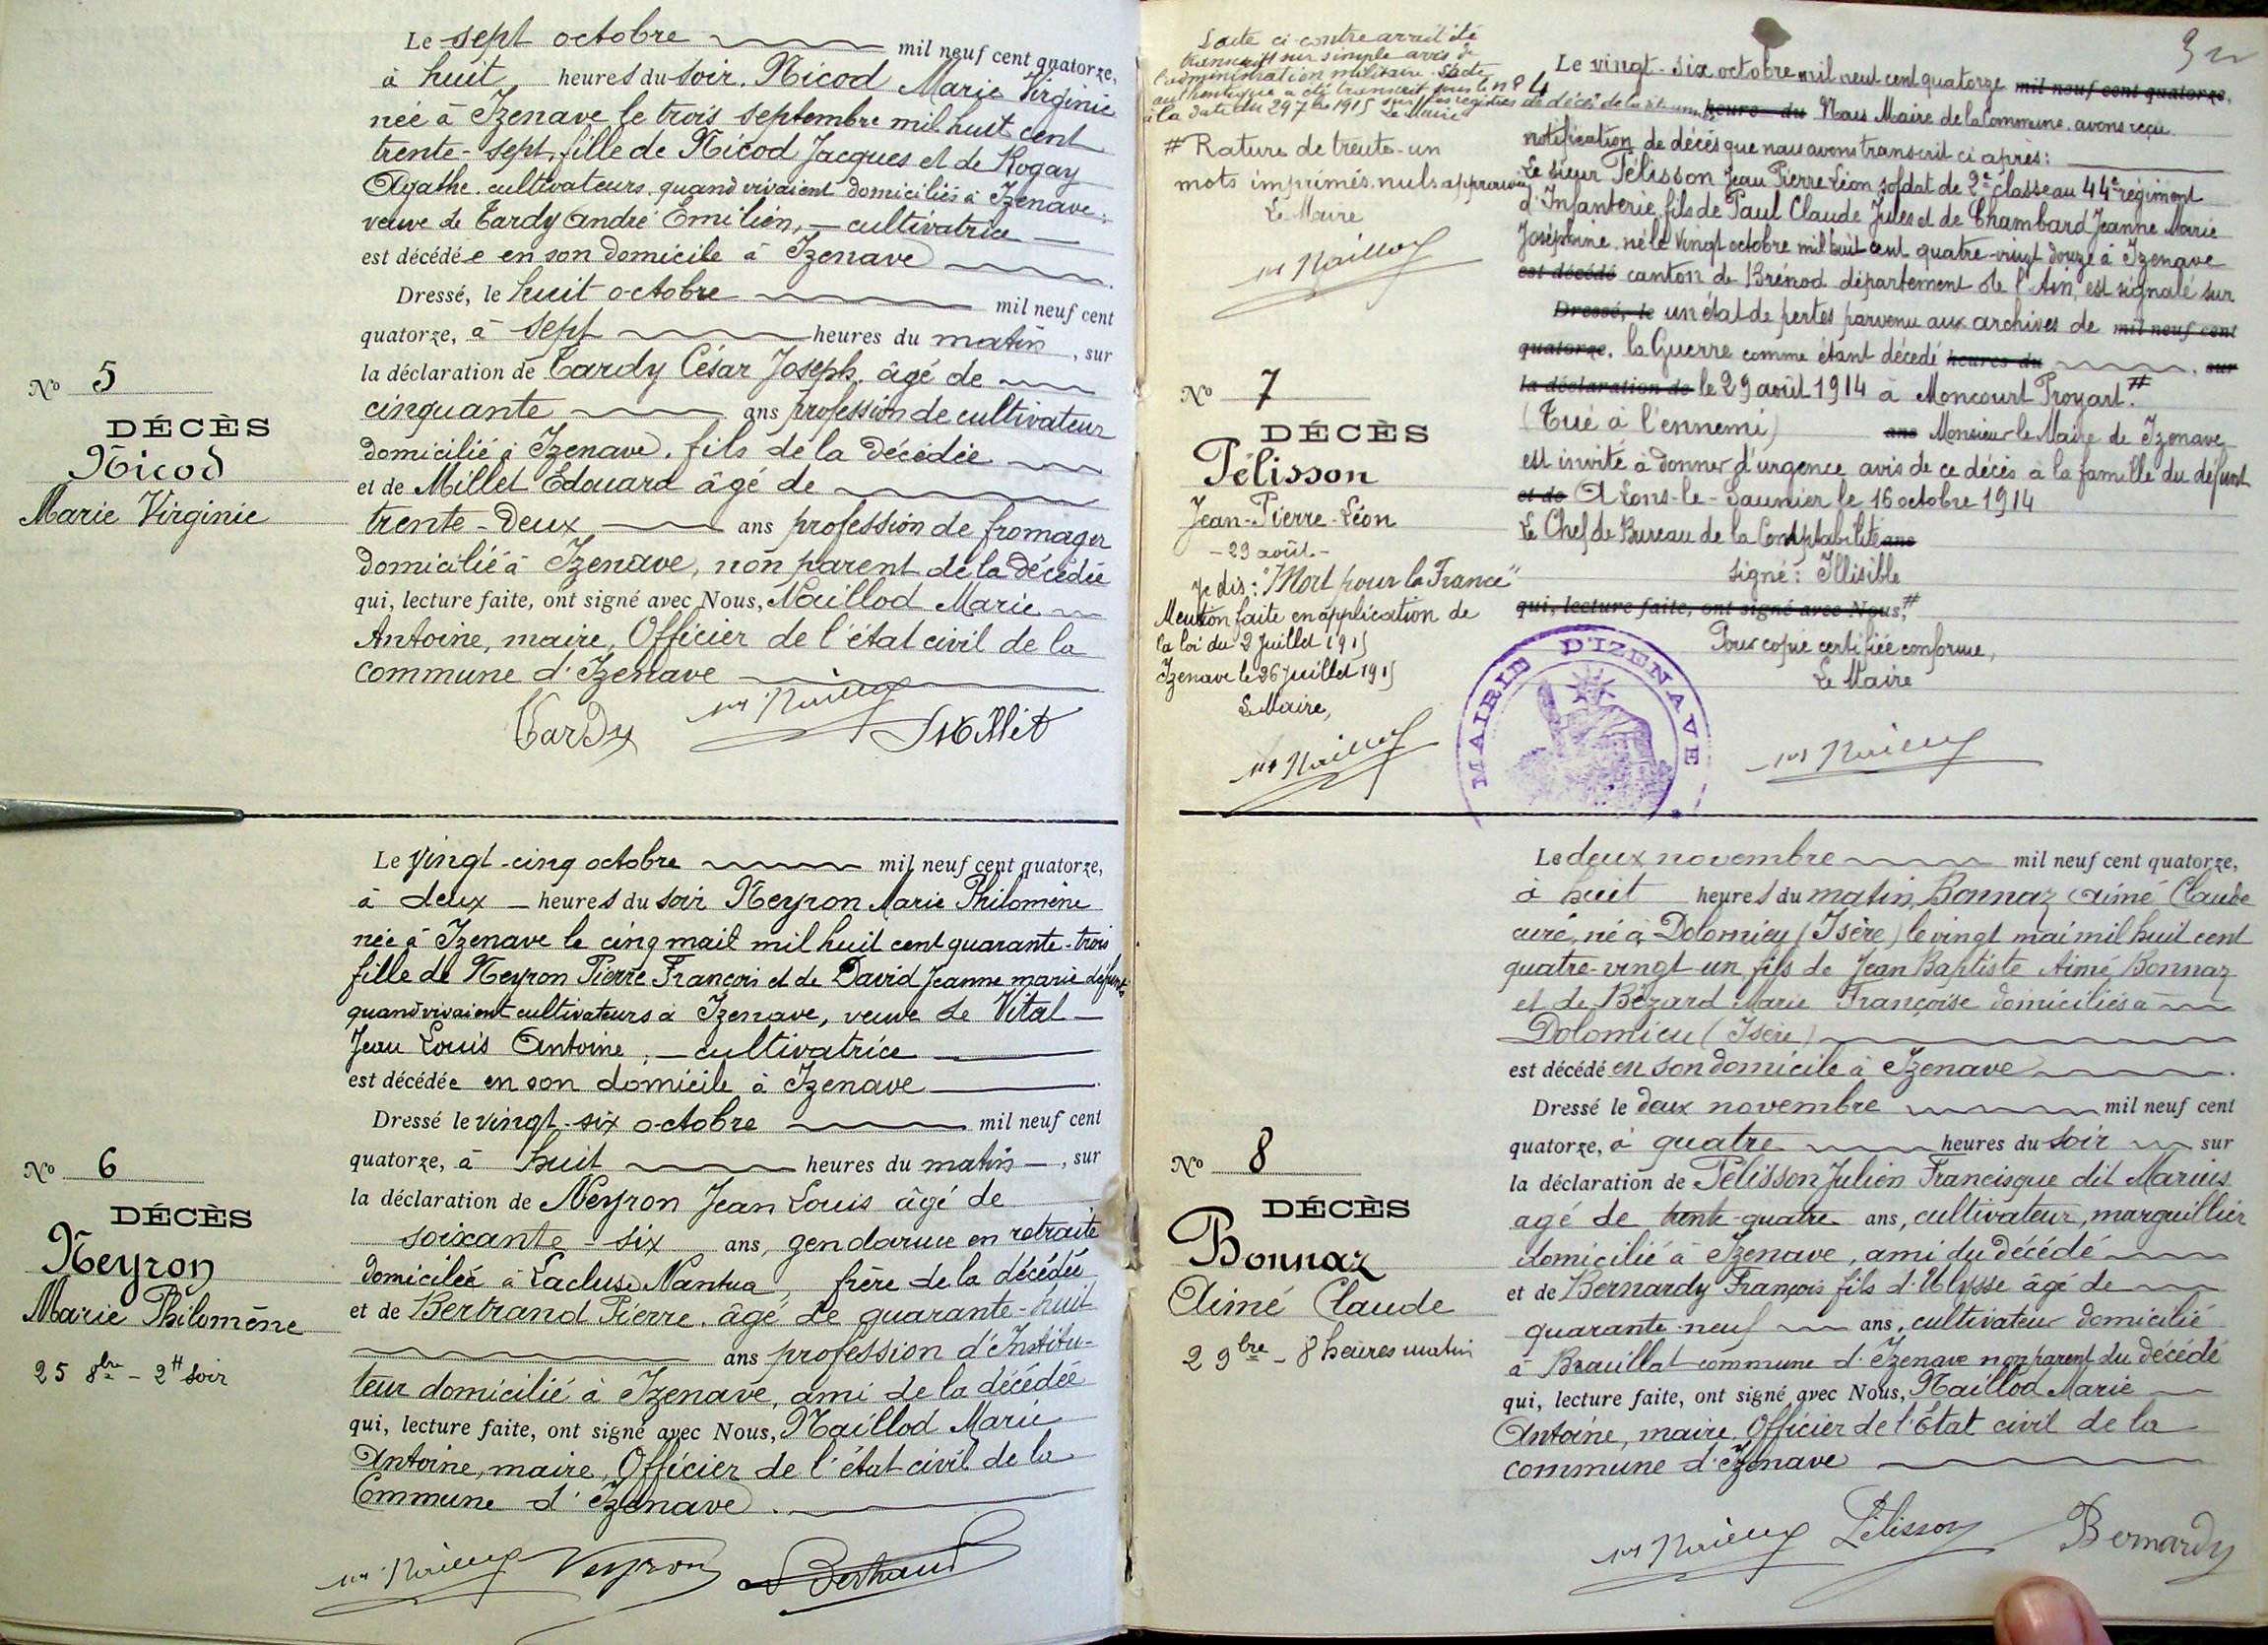 Le sept octobre mil neuf cent quatorze,
à huit heures du soir. Nicod Marie Virginie
née à Izenave le trois septembre mil huit cent
trente-sept, fille de Nicod Jacques et de Rogay
Agathe. cultivateurs quand vivaient domiciliés à Izenave.
veuve de Tardy André Emilien, — cultivatrice —
est décédée en son domicile à Izenave
Dressé, le huit octobre mil neuf cent
quatorze, à sept heures du matin, sur
la déclaration de Tardy César Joseph, âgé de
cinquante ans profession de cultivateur
domicilié à Izenave. fils de la décédée
et de Millet Edouard âgé de
trente-deux ans profession de fromager
domicilié à Izenave, non parent de la décédée
qui, lecture faite, ont signé avec Nous, Naillod Marie
Antoine, maire, Officier de l'état civil de la
commune d'Izenave
Tardy Millet
No 5
DÉCÈS
Nicod
Marie Virginie
Le vingt-cinq octobre mil neuf cent quatorze,
à deux — heures du soir Neyron Marie Philomène
née à Izenave le cinq mail mil huit cent quarante-trois
fille de Neyron Pierre François et de David Jeanne marie défunts
quand vivaient cultivateurs à Izenave, veuve de Vital —
Jean Louis Antoine, — cultivatrice
est décédée en son domicile à Izenave
Dressé le vingt-six octobre mil neuf cent
quatorze, à huit heures du matin —, sur
la déclaration de Neyron Jean Louis âgé de
soixante-six ans, gendarme en retraite
domicilié à Lacluse Nantua, frère de la décédée
et de Bertrand Pierre, âgé de quarante-huit
ans profession d'Institu-
teur domicilié à Izenave, ami de la décédée
qui, lecture faite, ont signé avec Nous, Naillod Marie
Antoine, maire, Officier de l'état civil de la
Commune d'Izenave
Neyron Bertrand
No 6
DÉCÈS
Neyron
Marie Philomène
25 8bre - 2H soir
L'acte ci-contre avait été
transcrit sur simple avis de
l'administration militaire. L'acte
authentique a été transcrit sous le nº 4
à la date du 29 7bre 1915 sur les registres de décès de la
Le Maire
# Rature de trente-un
mots imprimés nuls approuvée
Le Maire
No 7
DÉCÈS
Pélisson
Jean-Pierre-Léon
- 29 août -
je dis: "Mort pour la France"
Mention faite en application de
la loi du 2 Juillet 1915
Izenave le 26 Juillet 1915
Le Maire,
Le vingt-six octobre mil neuf cent quatorze mil neuf cent quatorze,
heure du Nous Maire de la Commune. avons reçu
notification de décès que nous avons transcrit ci après:
Le sieur Pélisson Jean Pierre Léon soldat de 2e classe au 44e régiment
d'Infanterie, fils de Paul Claude Jules et de Chambard Jeanne Marie
Joséphine. né le Vingt octobre mil huit cent quatre-vingt douze à Izenave
est décédé canton de Brénod département de l'Ain, est signalé sur
Dressé, le un état de pertes parvenu aux archives de mil neuf cent
quatorze, la Guerre comme étant décédé heures du, sur
la déclaration de le 29 août 1914 à Moncourt Proyart.#
(Tué à l'ennemi) ans Monsieur le Maire de Izenave
est invité à donner d'urgence avis de ce décès à la famille du défunt
et de A Lons-le-Saunier le 16 octobre 1914
Le Chef de Bureau de la Comptabilité ans
Signé: Illisible
qui, lecture faite, ont signé avec Nous,#
Pour copie certifiée conforme,
Le Maire
MAIRIE D'IZENAVE
Le deux novembre mil neuf cent quatorze,
à huit heures du matin, Bonnaz Aimé Claude
curé, né à Dolomieu (Isère) le vingt mai mil huit cent
quatre-vingt-un fils de Jean Baptiste Aimé Bonnaz
et de Bézard Marie Françoise domiciliés à
Dolomieu (Isère)
est décédé en son domicile à Izenave
Dressé le deux novembre mil neuf cent
quatorze, à quatre heures du soir sur
la déclaration de Pélisson Julien Francisque dit Marius
agé de trente-quatre ans, cultivateur, marguillier
domicilié à Izenave, ami du décédé
et de Bernardy François fils d'Ulysse âgé de
quarante-neuf ans, cultivateur domicilié
à Brouillat commune d'Izenave non parent du décédé
qui, lecture faite, ont signé avec Nous, Naillod Marie
Antoine, maire, Officier de l'État civil de la
commune d'Izenave
Pélisson Bernardy
No 8
DÉCÈS
Bonnaz
Aimé Claude
2 9bre - 8 heures matin